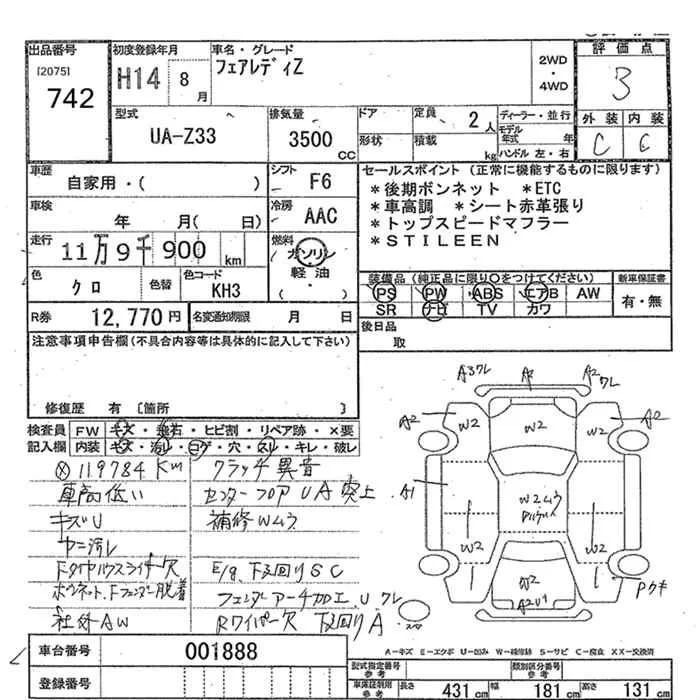 出品番号
[2075]
742
初度登録年月
H14 8月
車名・グレード
フェアレディZ
2WD・4WD
評価点
3
型式
UA-Z33
排気量
3500 CC
ドア
形状
定員
2人
積載
kg
ディーラー・並行
モデル年式 年
ハンドル 左・右
外装 内装
C C
車歴
自家用・( )
シフト
F6
車検
年 月( 日)
冷房
AAC
走行
11万9千900 km
燃料
ガソリン
軽油
( ・ )
色
クロ
色替
色コード
KH3
R券
12,770円
名変通知期限 月 日
セールスポイント(正常に機能するものに限ります)
*後期ボンネット *ETC
*車高調 *シート赤革張り
*トップスピードマフラー
*STILEEN
装備品(純正品に限り○をつけてください)
PS PW ABS エアB AW
SR ナビ TV カワ
新車保証書
有・無
後日品
取
注意事項申告欄(不具合内容等は具体的に記入して下さい)
修復歴 有 〔箇所 〕
検査員 FW キズ・飛石・ヒビ割・リペア跡・×要
記入欄 内装 キズ・汚レ・コゲ・穴・スレ・キレ・破レ
ⓧ 119784 Km
車高低い
キズU
ヤニ汚レ
Fタイヤハウスライナー欠
ボンネット、Fフェンダー脱着
社外AW
クラッチ異音
センターフロアUA突上
補修Wムラ
E/g、下廻りSC
フェンダーアーチ加工、Uクレ
Rワイパー欠 下廻りA
A3クレ A2 A2クレ
A2 W2 W2 W2 A2
A1
W2ムラ
W2 W2
W2
A2U1
Pウキ
スペア
A-キズ E-エクボ U-凹み W-補修跡 S-サビ C-腐食 XX-交換済
車台番号
001888
登録番号
型式指定番号 参考
類別区分番号 参考
車保証制用 参考
長さ 431cm 幅 181cm 高さ 131cm